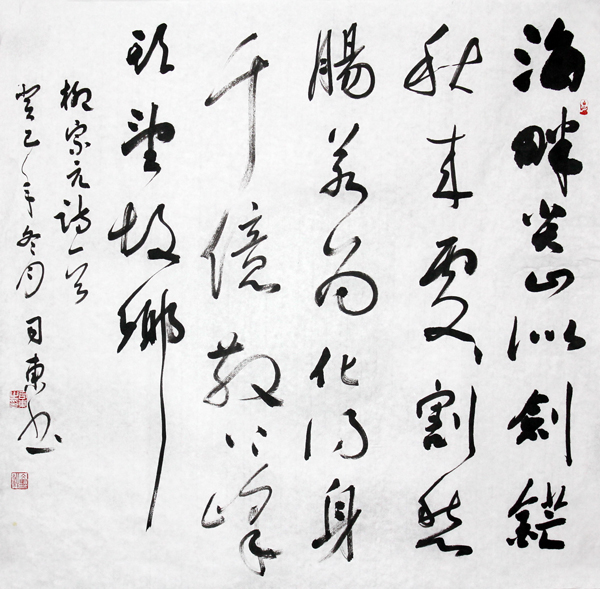 海畔尖山似劍鋩
秋来處々割愁
腸若为化得身
千億散上峰
頭望故鄉
柳宗元詩一首
癸巳年冬月司東书